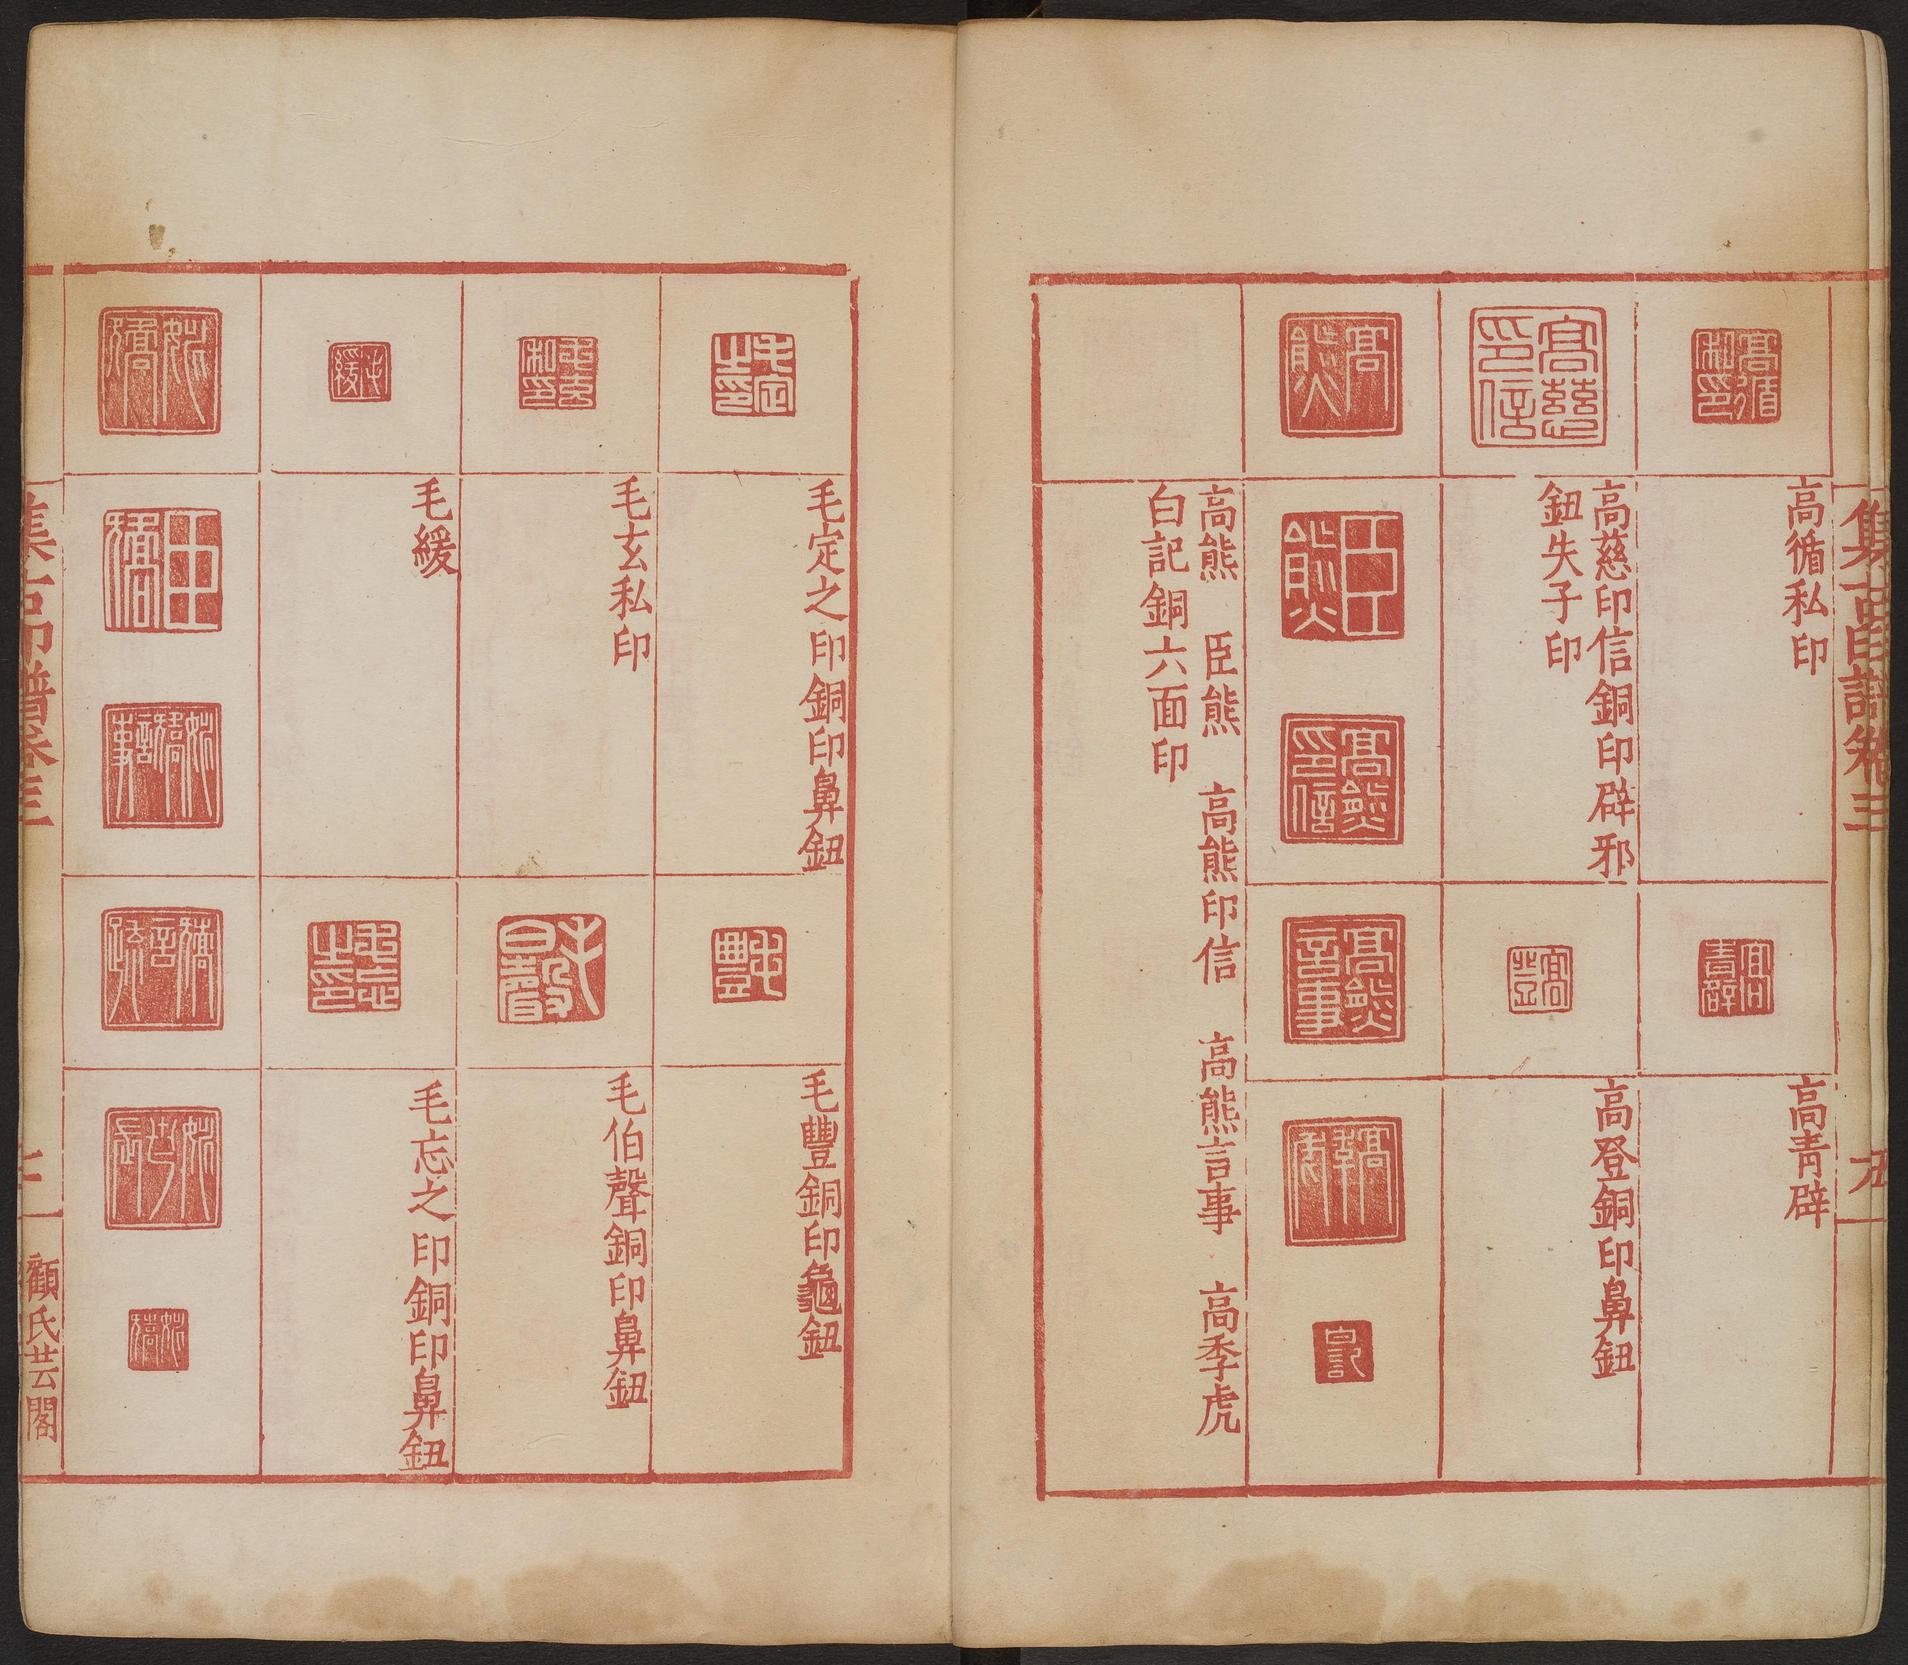 集古印譜卷三
五
高循私印
高青辟
高慈印信銅印辟邪
鈕失子印
高登銅印鼻鈕
高熊 臣熊 高熊印信 高熊言事 高季虎
白記銅六面印
毛定之印銅印鼻鈕
毛豐銅印龜鈕
毛玄私印
毛伯聲銅印鼻鈕
毛緩
毛忘之印銅印鼻鈕
集古印譜卷三
顧氏芸閣